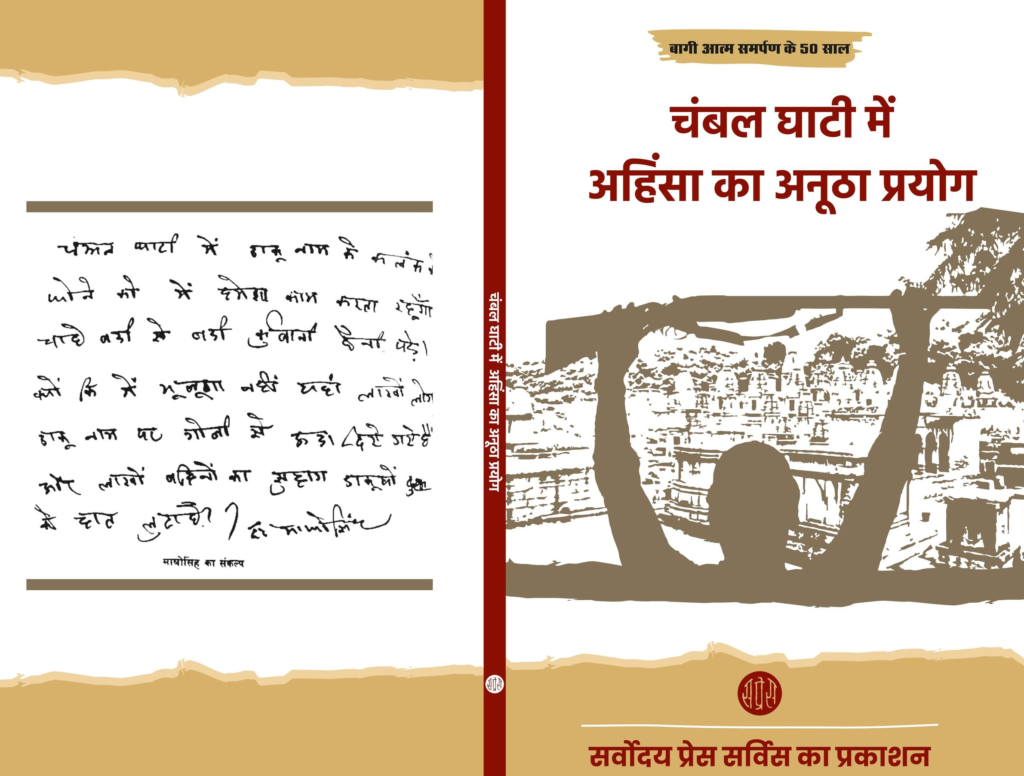 चम्बल घाटी में डाकू नाम के कलंक
धोने को में हमेशा काम करता रहूँगा
चाहे बड़ी से बड़ी कुर्बानी देनी पड़े।
क्यों कि में भूलूगा नहीं यहां लाखों लोग
डाकू नाम पर गोली से ऊडा दिये गये हैं
और लाखों बहिनों का सुहाग डाकूओं
के हात लुटा है? ह० माधोसिंह
माधोसिंह का संकल्प
चंबल घाटी में अहिंसा का अनूठा प्रयोग
सप्रेस
बागी आत्म समर्पण के 50 साल
चंबल घाटी में
अहिंसा का अनूठा प्रयोग
सप्रेस
सर्वोदय प्रेस सर्विस का प्रकाशन